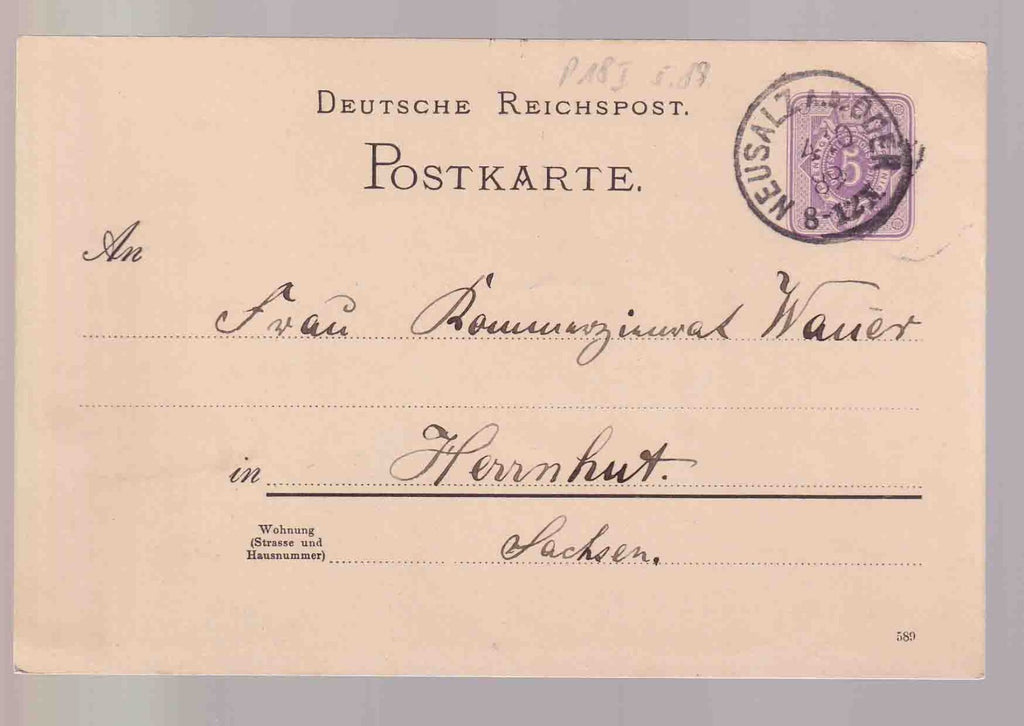 P18I 5.89
DEUTSCHE REICHSPOST.
POSTKARTE.
NEUSALZ A.D. ODER
89
8-12V.
5
An
Frau Kommerzienrat Wauer
in Herrnhut.
Wohnung
(Strasse und
Hausnummer)
Sachsen.
589